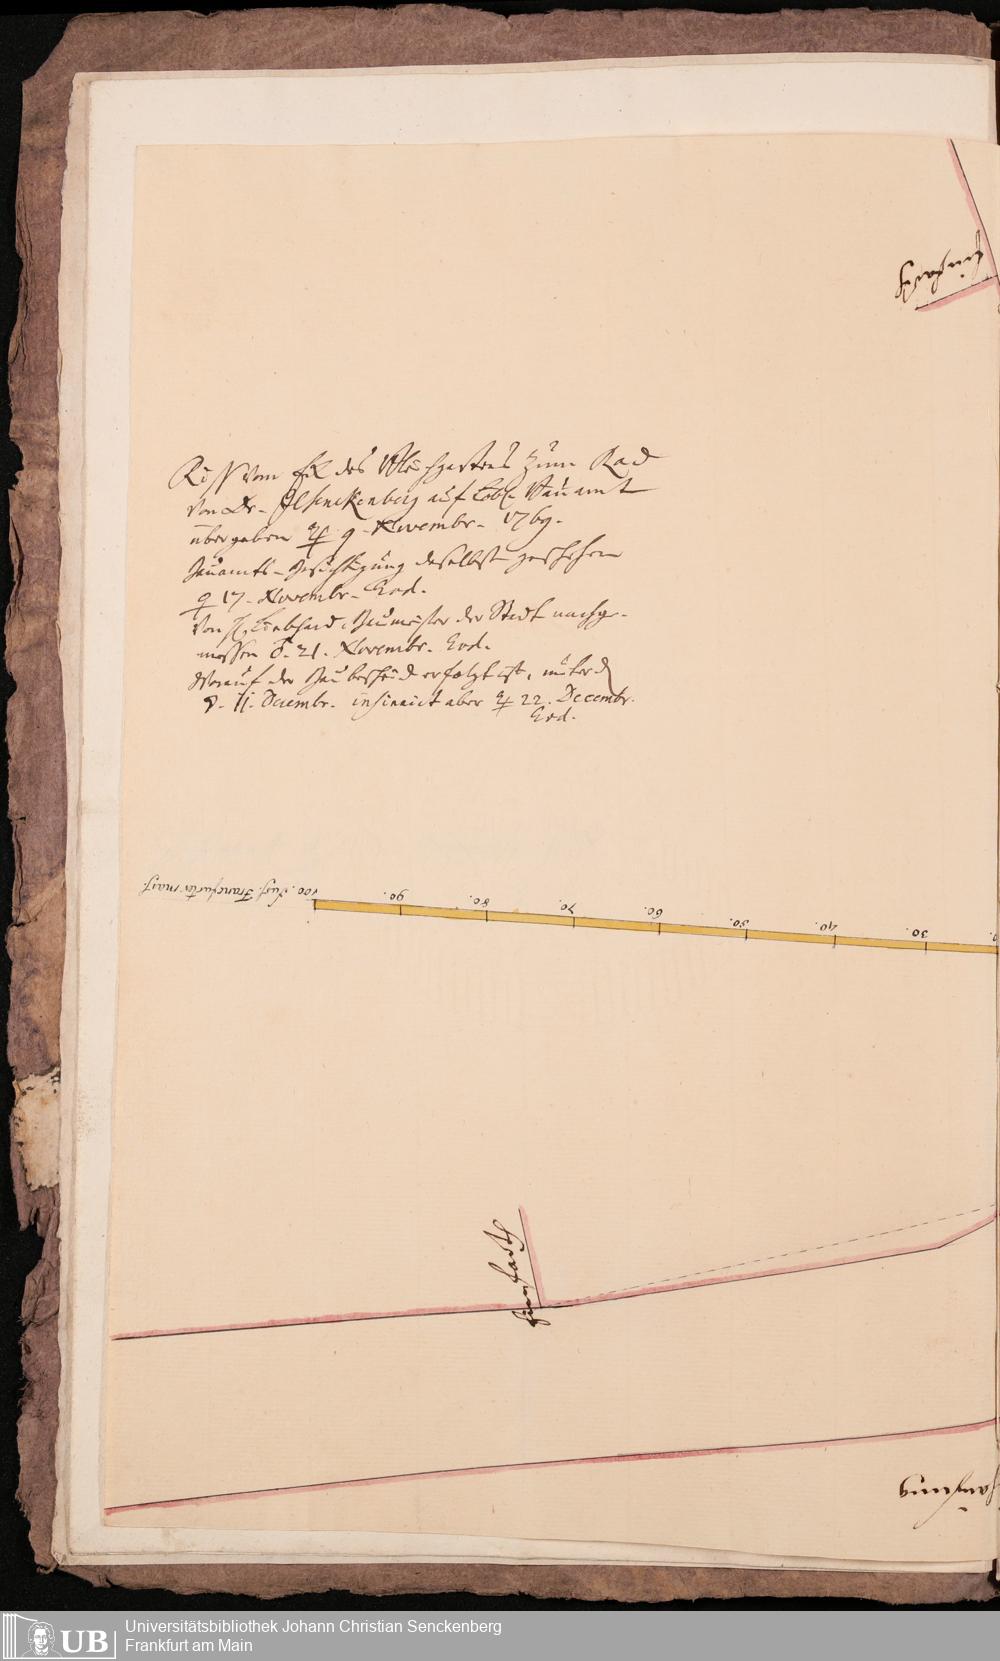 Riss vom Eck des Bleichgartens zum Rad
von Dr. Senckenberg auf Löbl. Bauamt
übergeben ♃ 9. Novembr. 1769.
Bauamts-Besichtigung daselbst geschehen
♀ 17. Novembr. Eod.
von H. Liebhard, Baumeister der Stadt nachge-
messen ♂. 21. Novembr. Eod.
Worauf der Baubescheid erfolgt ist, unterd
11. Decembr. insinuirt aber 22. Decembr.
Eod.
100. Fuß. Francfurter maas.
90.
80.
70.
60.
50.
40.
30.
Universitätsbibliothek Johann Christian Senckenberg
Frankfurt am Main
UB